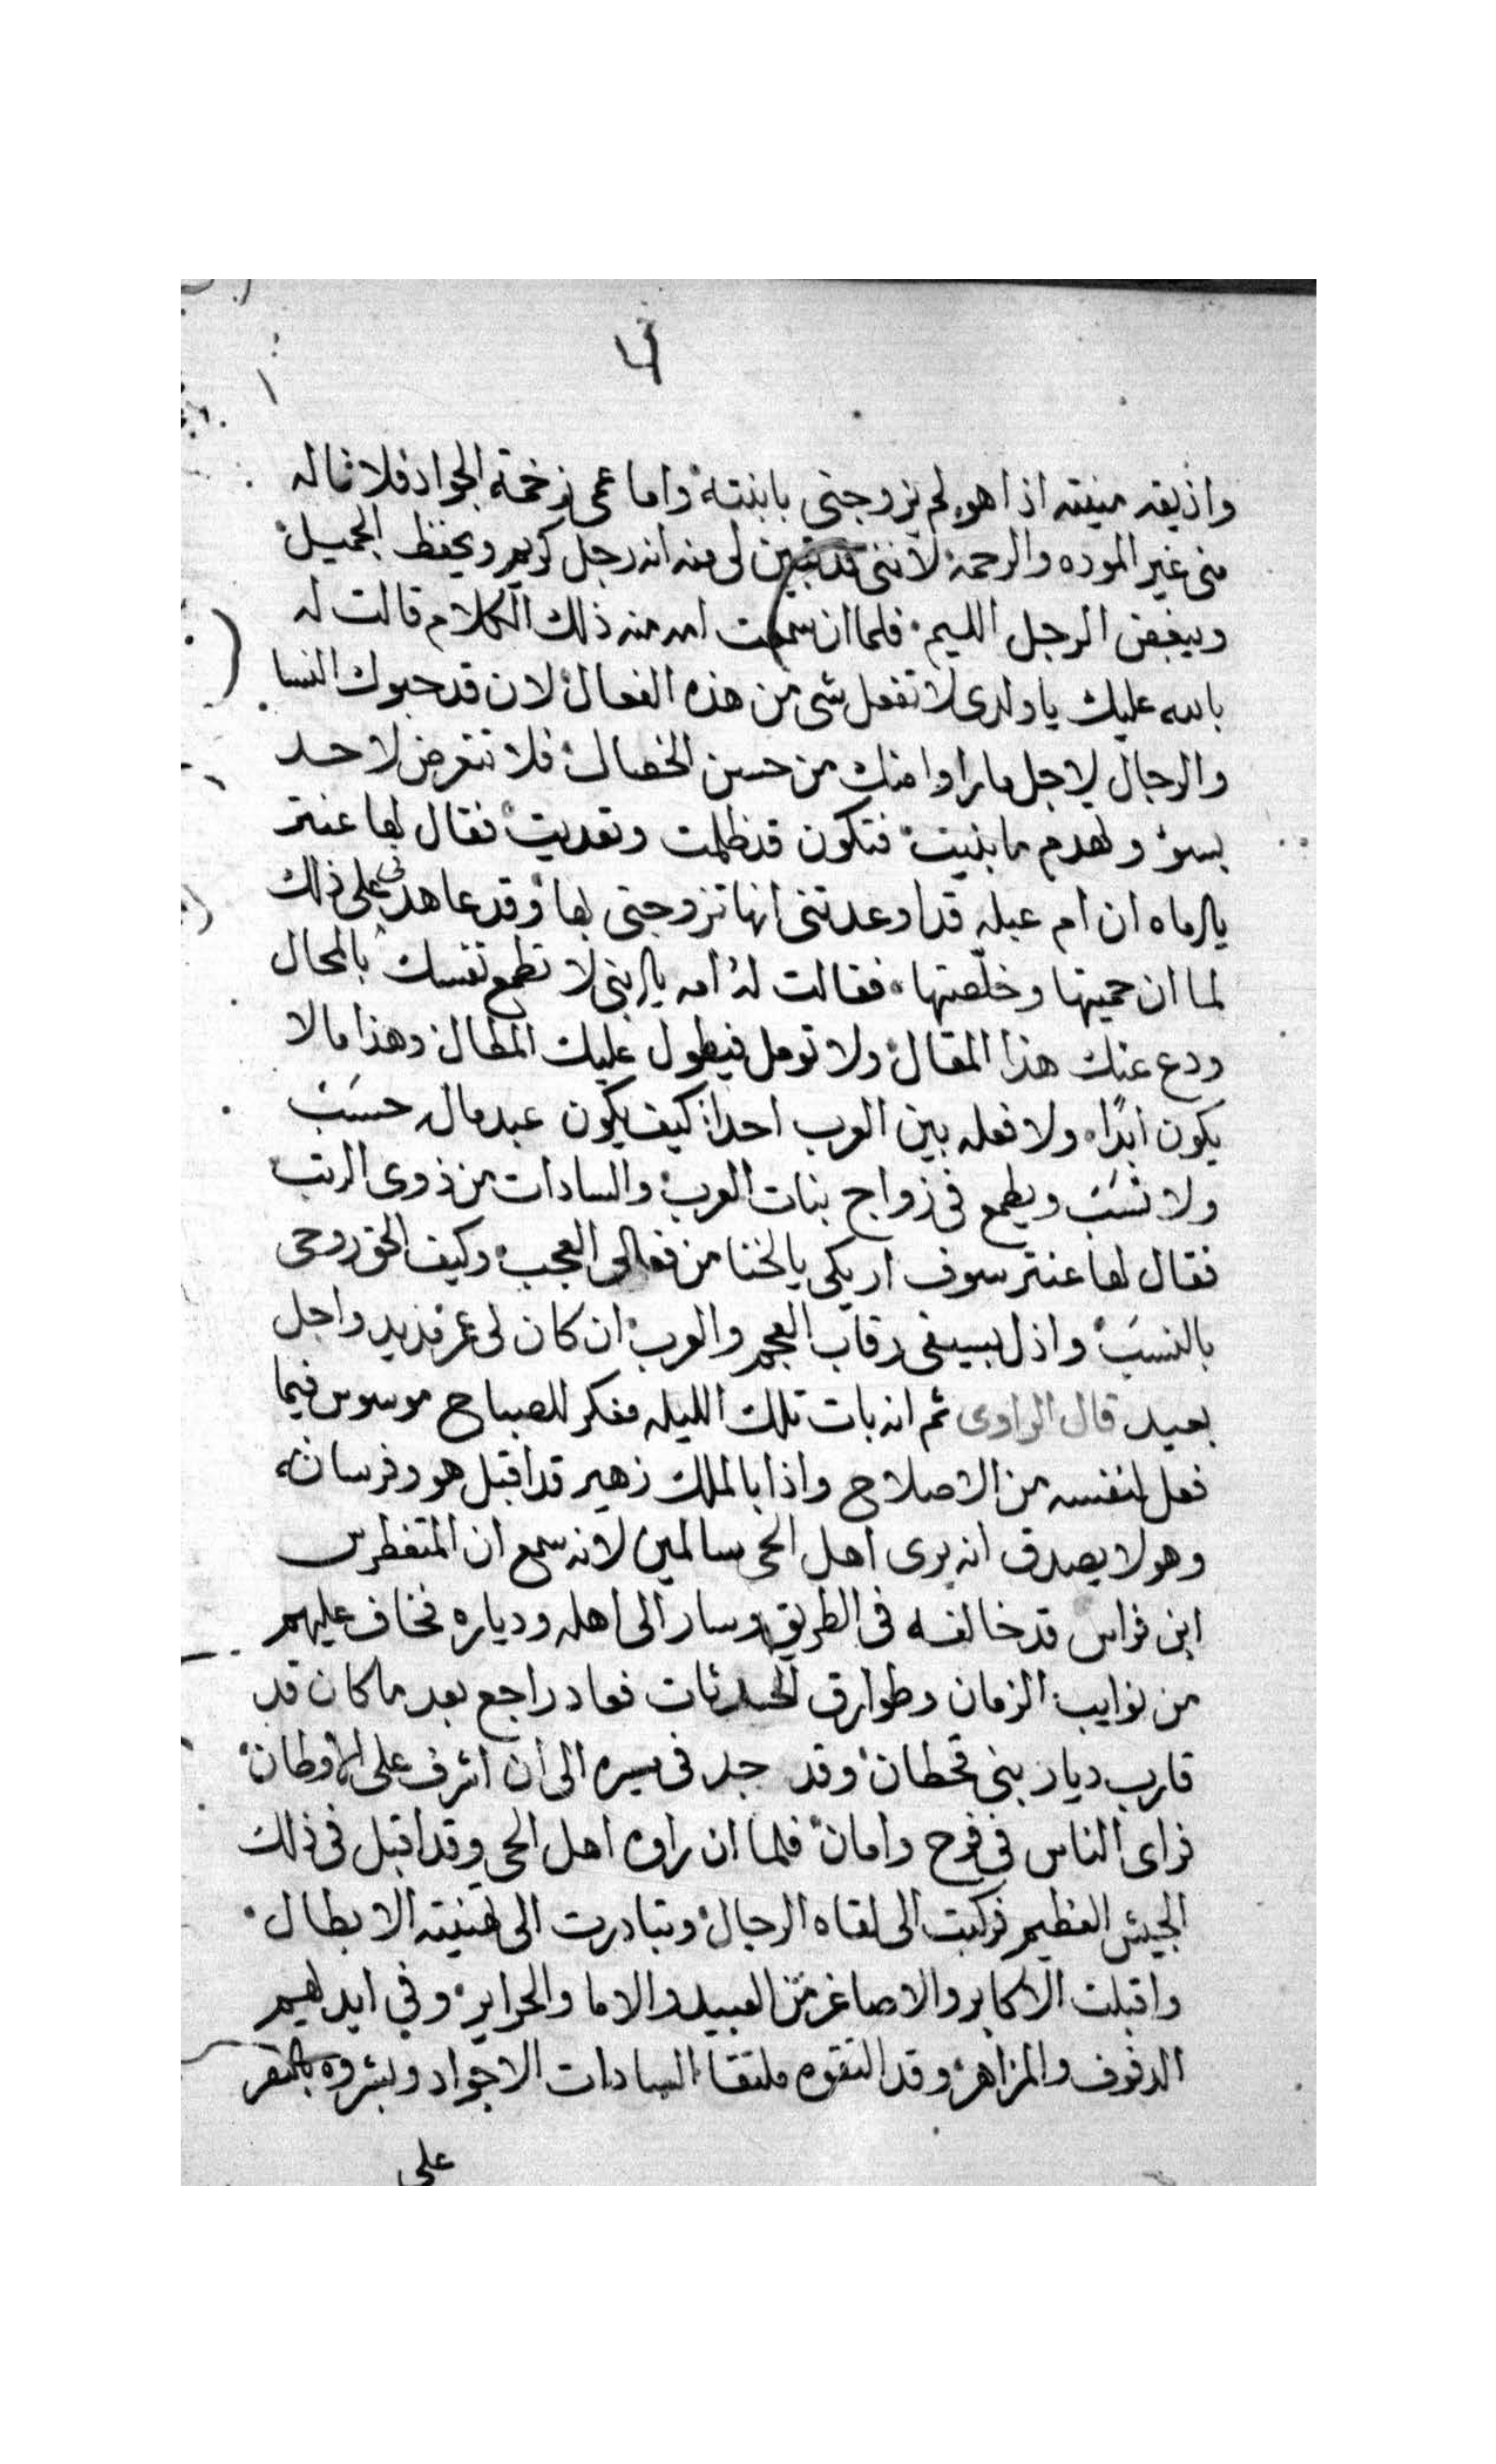 واذيقه منيته اذا هو لم يزوجنى بابنته واما عمى زخمة الجواد فلا ثاله
منى غير الموده والرحمة لأننى قد تبين لى منه انه رجل كريم ويحفظ الجميل
ويبغض الرجل الليم فلما ان سمعت امه منه ذلك الكلام قالت له
بالله عليك ياولدى لا تفعل شى من هذه الفعال لان قد حبوك النسا
والرجال لاجل ما راوا منك من حسن الخصال فلا تتعرض لاحد
بسوء وتهدم ما بنيت فتكون قد ظلمت وتعديت فقال لها عنتر
يا اماه ان ام عبله قد اوعدتنى انها تزوجنى بها وقد عاهدتنى على ذلك
لما ان حميتها وخلصتها فقالت له امه يا ابنى لا تطمع نفسك بالمحال
ودع عنك هذا المقال ولا تومل فيطول عليك المطال وهذا ما لا
يكون ابدًا ولا فعله بين العرب احدا كيف يكون عبد ماله حسَبْ
ولا نسَبَ ويطمع فى زواج بنات العرب والسادات من ذوى الرتب
فقال لها عنتر سوف اريكى يالخنا من فعالى العجب وكيف الحق روحى
بالنسَبْ واذل بسيفى رقاب العجم والعرب ان كان لى عمر مديد واجل
بعيد قال الراوى ثم انه بات تلك الليله مفكر للصباح موسوس فيما
فعل لنفسه من الاصلاح واذا بالملك زهير قد اقبل هو وفرسانه
وهو لا يصدق انه يرى اهل الحى سالمين لانه سمع ان المتغطرس
ابن فراس قد خالفه فى الطريق وسار الى اهله ودياره فخاف عليهم
من نوايب الزمان وطوارق الحدثات فعاد راجع بعد ما كان قد
قارب ديار بنى قحطان وقد جد فى سيره الى ان اشرف على الاوطان
فراى الناس فى فرح وامان فلما ان راوه اهل الحى وقد اقبل فى ذلك
الجيش العظيم فركبت الى لقاه الرجال وتبادرت الى تهنيته الابطال
واقبلت الاكابر والاصاغر من العبيد والاما والحراير وفى ايديهم
الدفوف والمزاهر وقد التقوه ملتقا السادات الاجواد وبشروه بالنصر
على